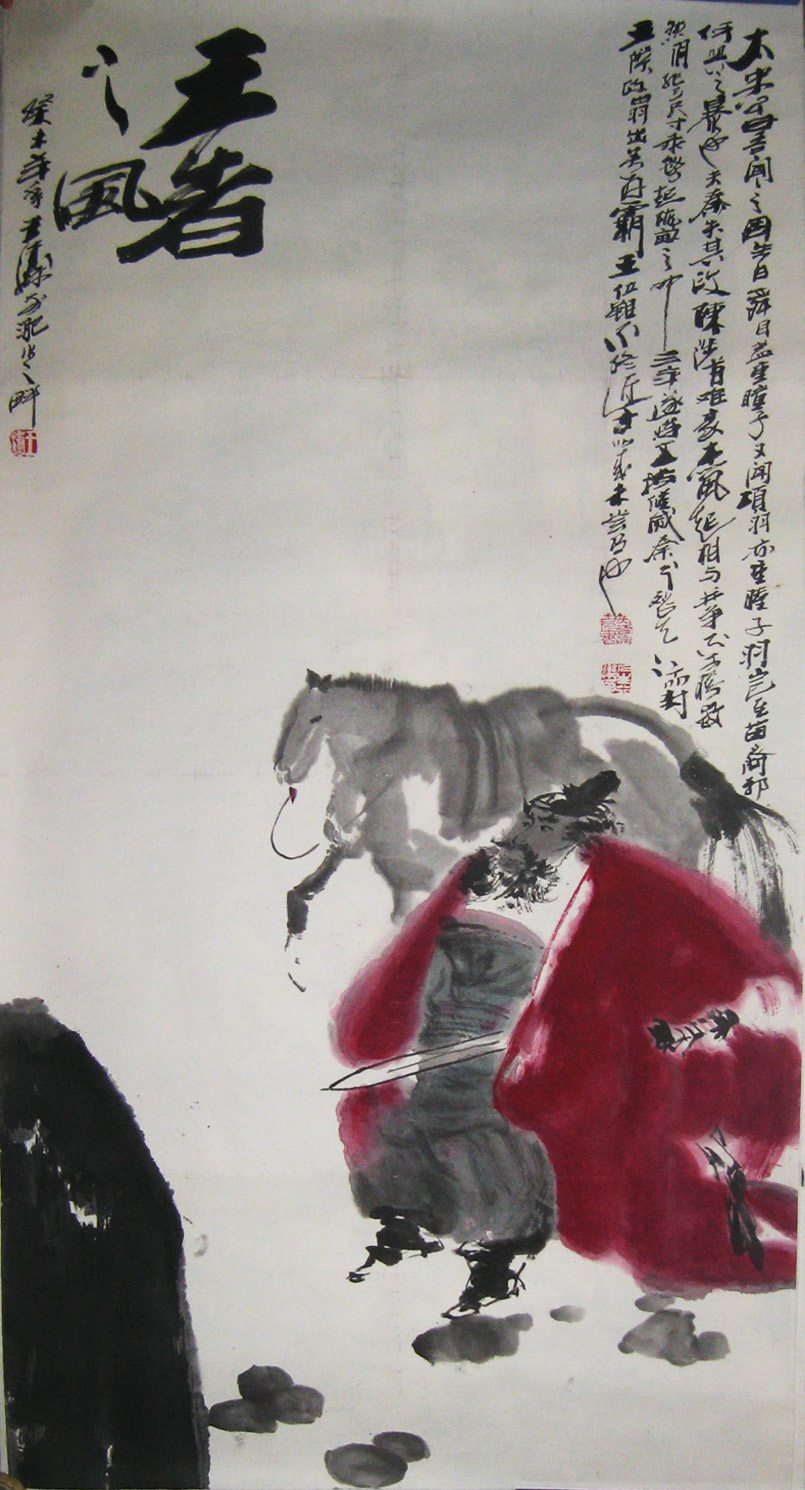 王者
之風
太史公曰吾聞之周生曰舜目蓋重瞳子又聞項羽亦重瞳子羽豈其苗裔邪
何興之暴也夫秦失其政陳涉首難豪杰風起相与并爭不可勝數
然羽非有尺寸乘勢起隴畝之中三年遂將五諸侯滅秦分裂天下而封
王侯政由羽出号為霸王位雖不終近古以來未嘗有也
癸未年 王濤 於淝水之畔